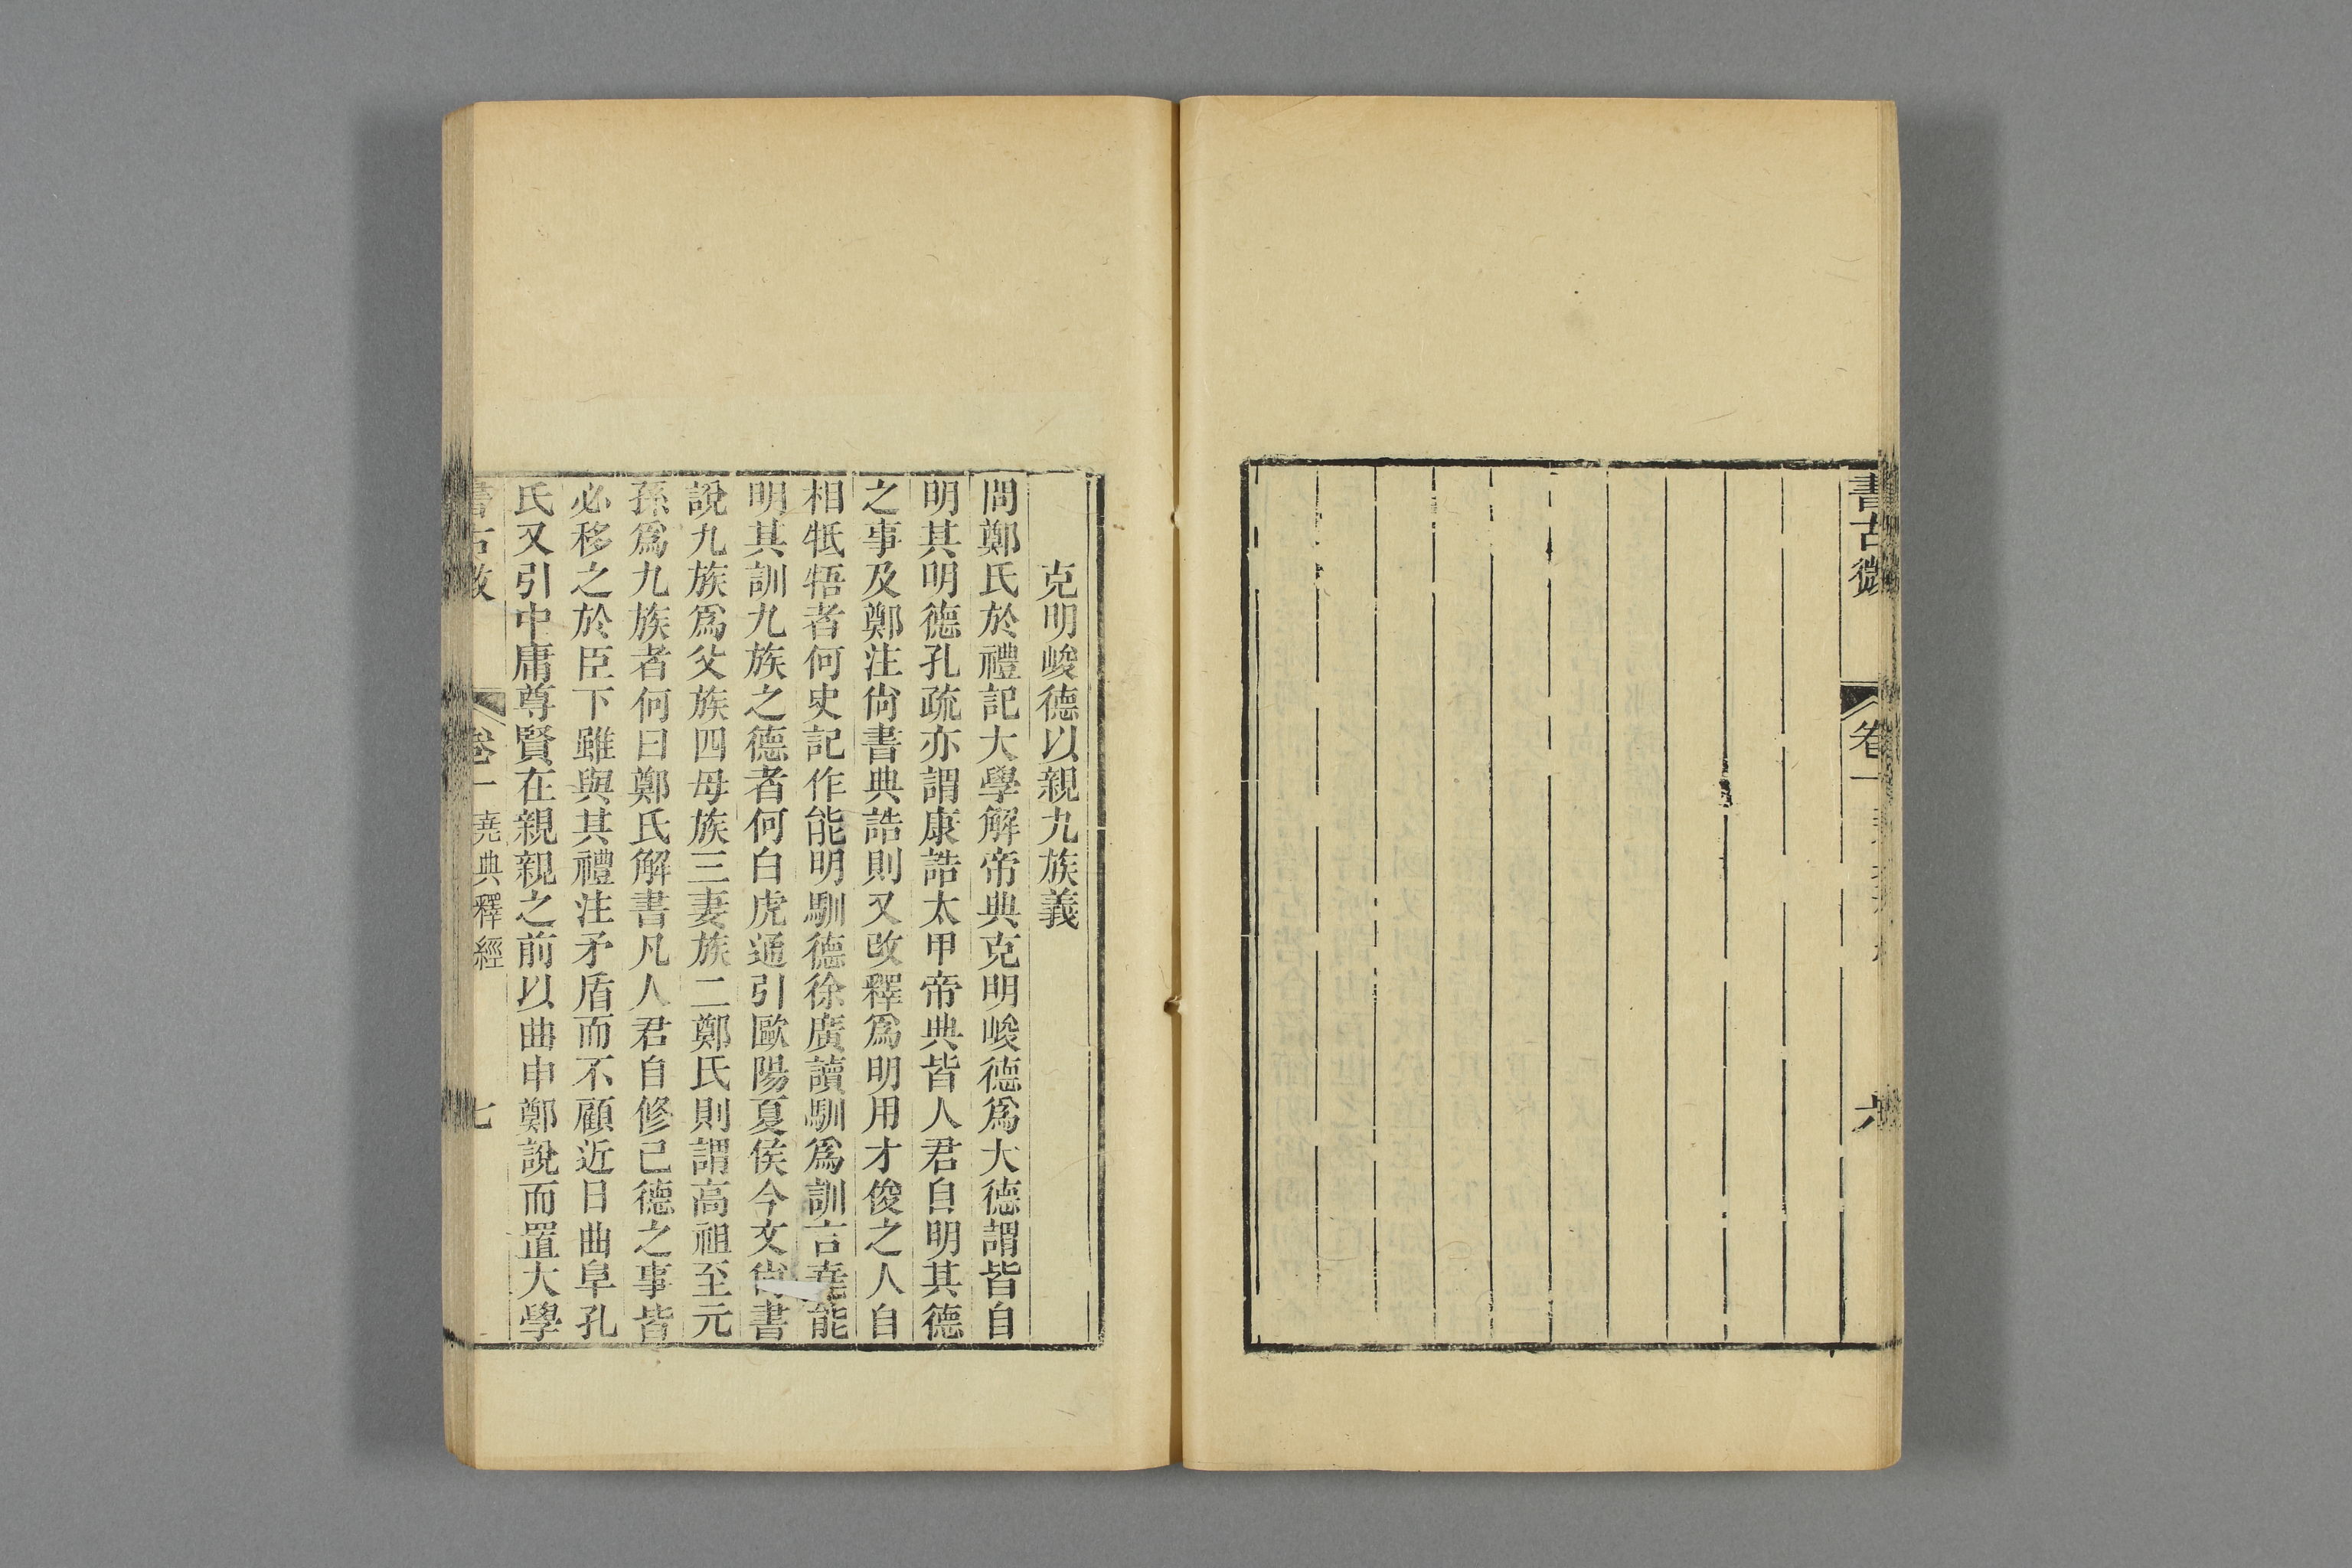 書古微
卷一
六
克明峻德以親九族義
問鄭氏於禮記大學解帝典克明峻德爲大德謂皆自
明其明德孔疏亦謂康誥太甲帝典皆人君自明其德
之事及鄭注尚書典誥則又改釋爲明用才俊之人自
相牴牾者何史記作能明馴德徐廣讀馴爲訓言堯能
明其訓九族之德者何白虎通引歐陽夏侯今文尚書
說九族爲父族四母族三妻族二鄭氏則謂高祖至元
孫爲九族者何曰鄭氏解書凡人君自修己德之事皆
必移之於臣下雖與其禮注矛盾而不顧近日曲阜孔
氏又引中庸尊賢在親親之前以曲申鄭說而置大學
書古微
卷一
堯典釋經
七